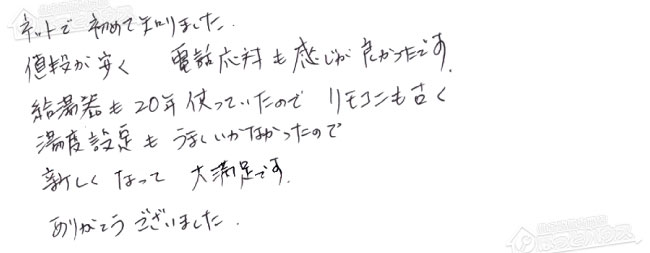 ネットで 初めて知りました.
値段が安く 電話応対も感じが良かったです.
給湯器も20年使っていたので リモコンも古く
温度設定も うまくいかなかったので
新しくなって 大満足です.
ありがとうございました.